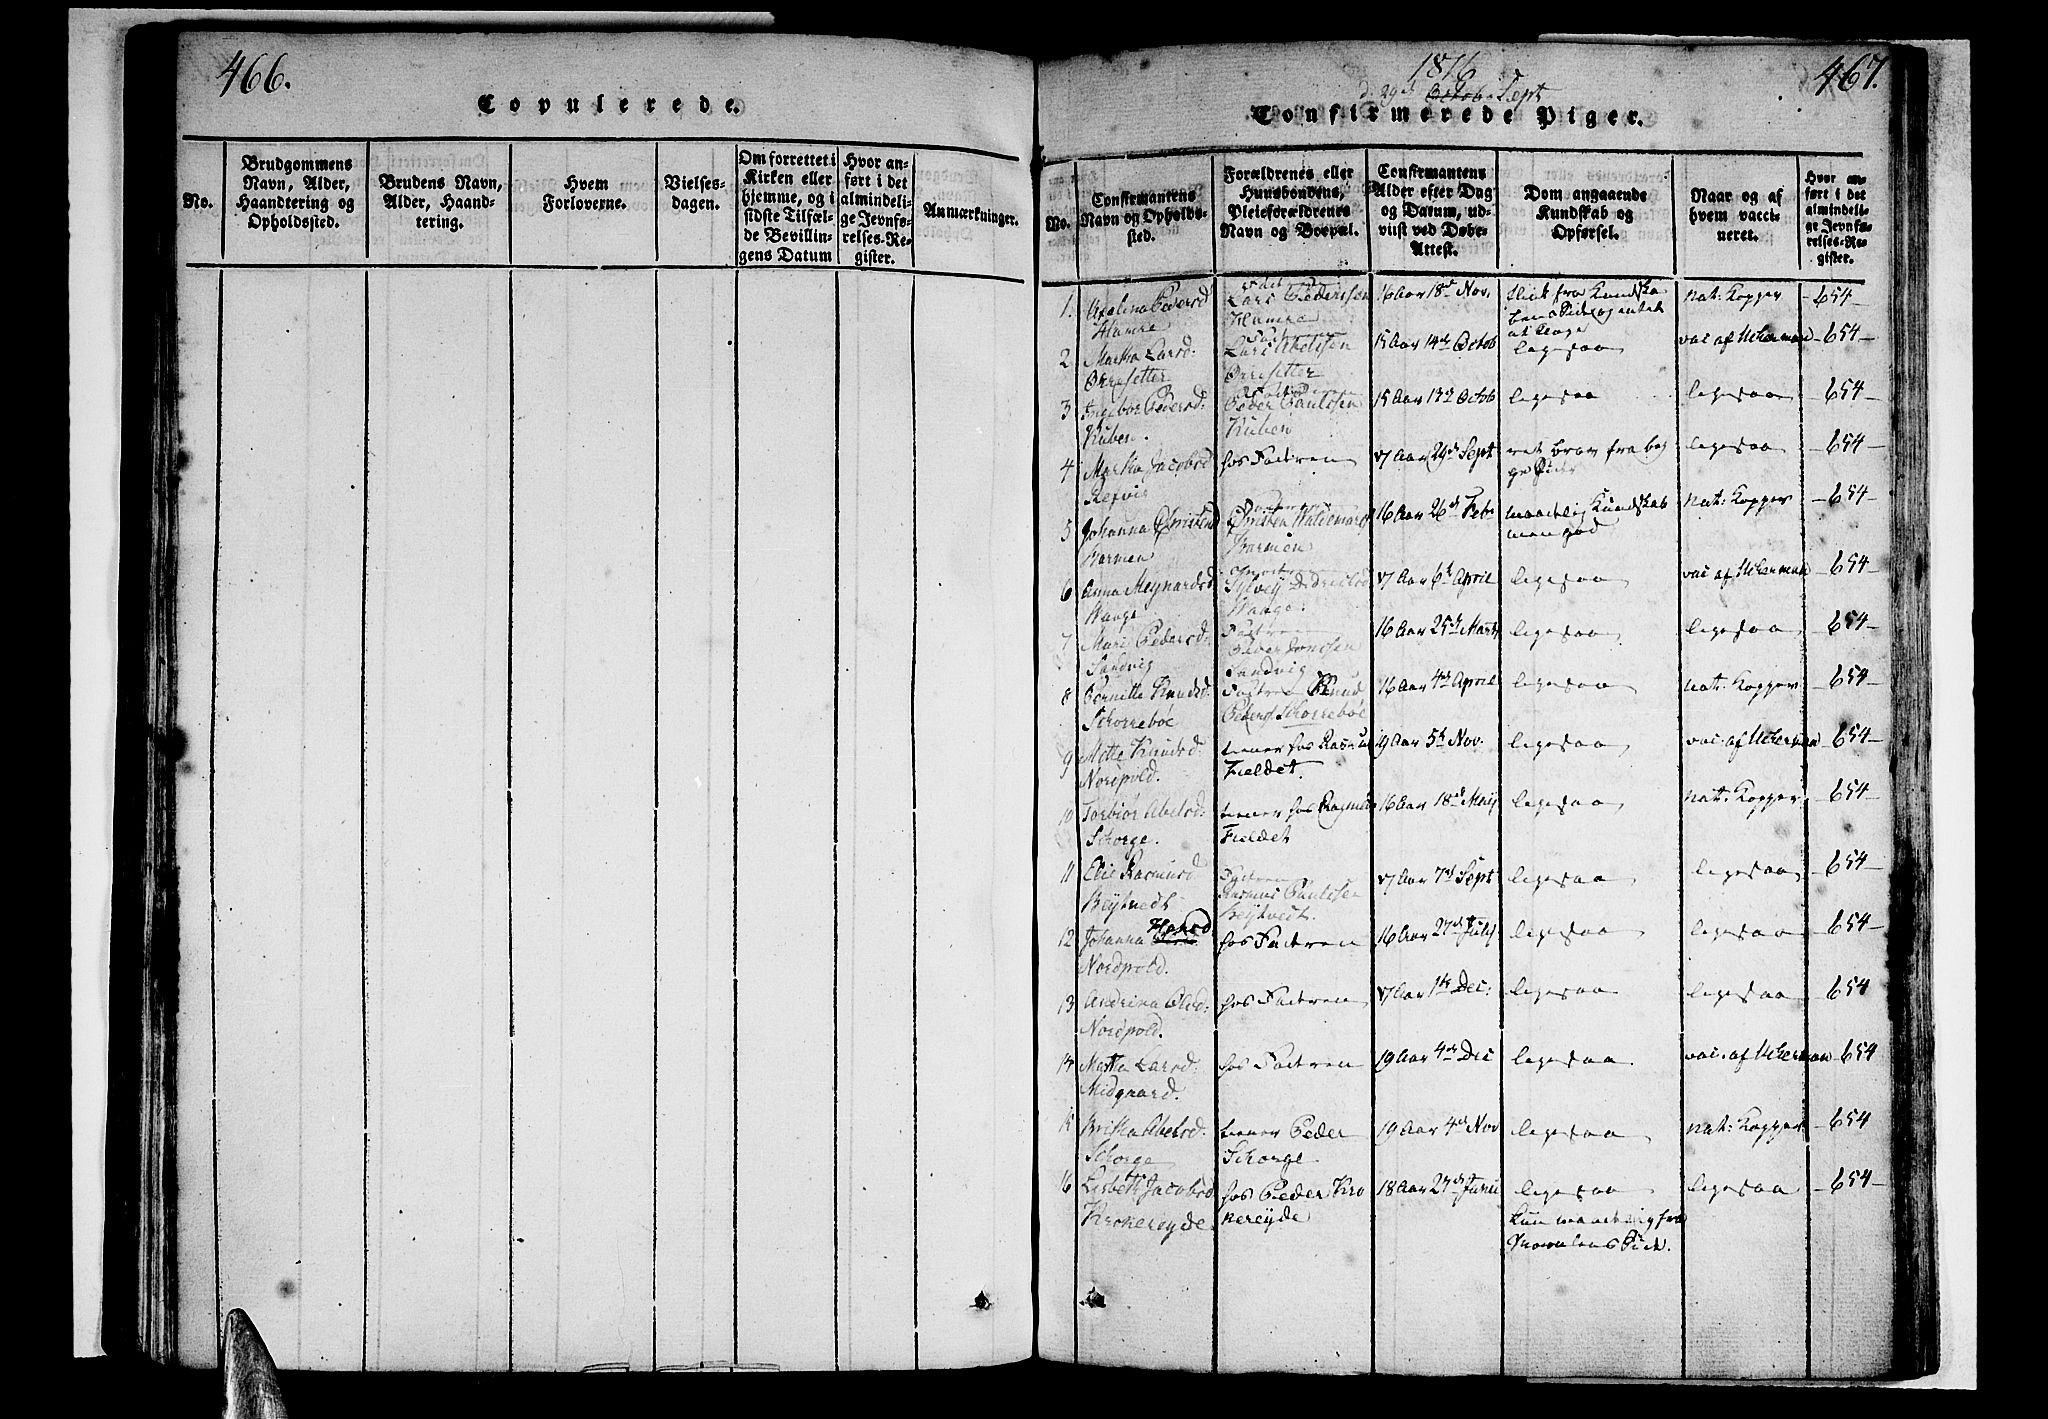 466.
Copulerede.
No.
Brudgommens Navn, Alder, Haandtering og Opholdssted.
Brudens Navn, Alder, Haandtering.
Hvem Forloverne.
Vielsesdagen.
Om forrettet i Kirken eller hjemme, og i sidste Tilfælde Bevillingens Datum
Hvor anført i det almindelige Jevnførelses-Register.
Anmærkninger.
1816
467.
d. 29de Octob. Sept
Confirmerede Piger.
No.
Confirmantens Navn og Opholdssted.
Forældrenes eller Huusbondens, Pleieforældrenes Navn og Boepæl.
Confirmantens Alder efter Dag og Datum, udviist ved Døbe-Attest.
Dom angaaende Kundskab og Opførsel.
Naar og af hvem vaccineret.
Hvor anført i det almindelige Jevnførelses-Register.
1. Pedersd Hamre Lars Pederssen Hamre 16 Aar 18de Nov. nat: Kopper - 654 -
2 Martha Larsd. Orresetter Lars Abelssen Orresetter 15 Aar 14de Octob ligesaa vac af Ukerman - 654 -
3 Ingebor Pedersd: Kuben. Peder Paulssen Kuben 15 Aar 13de Octob ligesaa ligesaa - 654 -
4 Martha Jacobsd Refvig hos Fadren 17 Aar 29de Sept ligesaa - 654 -
5 Johanna Christensd Barmen Christen Waldemars Barmen 16 Aar 26de Febr maadelig Kundskab nat: Kopper - 654 -
6 Anna Meynardsd Waage Sylvey Didricsd Waage 17 Aar 6te April ligesaa vac af Ukerman - 654 -
7 Mari Pedersd: Sandvig Fadren Peder Sandvig 16 Aar 25de Marts ligesaa ligesaa - 654 -
8 Pernitte Knudsd. Schorrebøe Fadren Knud Peders Schorrebøe 16 Aar 4de April ligesaa nat: Kopper - 654 -
9 Mette Knudsd. Nordpold. tiener hos Rasmus Fieldet. 19 Aar 5te Nov. ligesaa vac: af Ukerman - 654 -
10 Torbiør Abelsd: Schorge. tiener hos Rasmus Fieldet 16 Aar 18de Maÿ ligesaa nat: Kopper - 654 -
11 Elie Rasmusd Røytvedt Fadren Rasmus Paulssen Røytvedt. 17 Aar 7de Sept ligesaa ligesaa - 654 -
12 Johanna Hansd Nordpold. hos Fadren 16 Aar 27de July. ligesaa ligesaa - 654 -
13 Andrina Olsd: Nordpold. hos Fadren 17 Aar 1te Dec: ligesaa ligesaa - 654
14 Martha Larsd: Midgaard. hos Fadren 19 Aar 4de Dec ligesaa vac. af Ukerman - 654
15 Britha Abelsd. Schorge tiener Peder Schorge 19 Aar 4de Nov ligesaa nat: Kopper - 654 -
16 Lisbeth Jacobsd Krokerøyde. hos Peder Krokereyde 18 Aar 27de Junii ligesaa ligesaa - 654 -